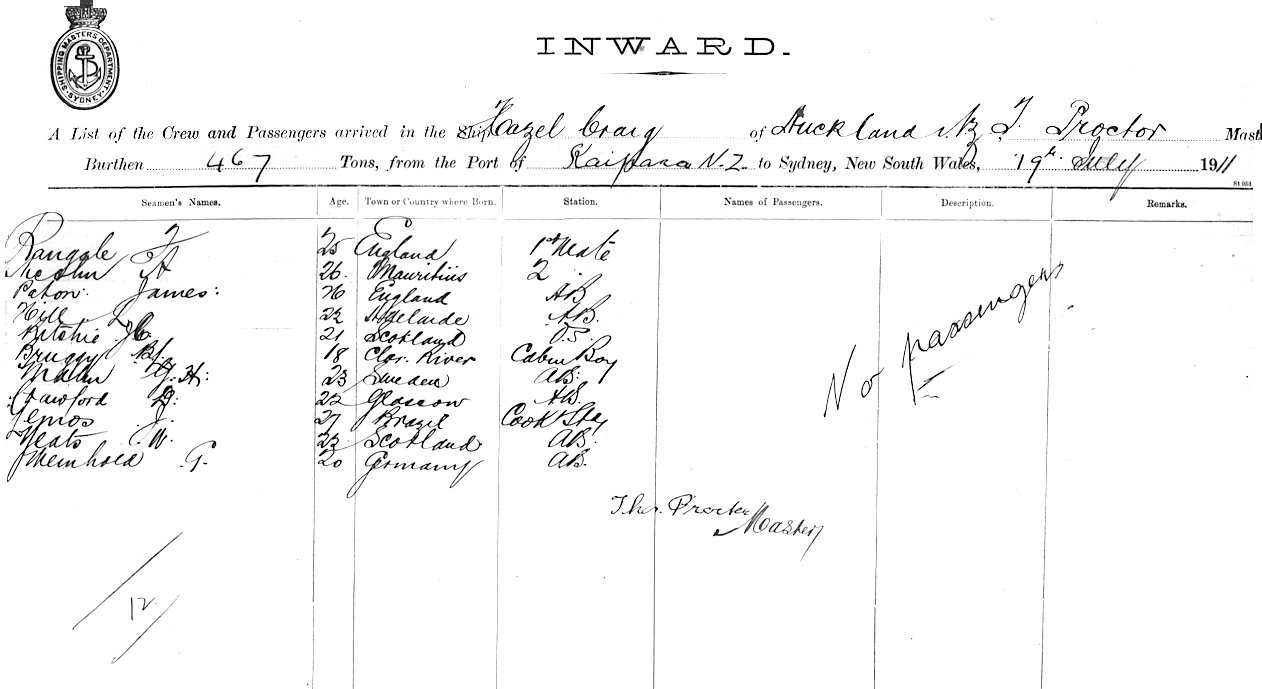 SHIPPING MASTERS DEPARTMENT
SYDNEY
INWARD.
A List of the Crew and Passengers arrived in the Ship Hazel Craig of Auckland N.Z T. Proctor Mast
Burthen 467 Tons, from the Port of Kaipara N.Z. to Sydney, New South Wales, 19th July 1911
St 951
Seamen's Names. Age. Town or Country where Born. Station. Names of Passengers. Description. Remarks.
25 England 1st Mate
A 26. Mauritius 2
Paton. James: 26 England AB
Hill 22 Adelaide AB.
Ritchie 21 Scotland O.S
Bruggy 18 Clar. River Cabin Boy
G. H: 23 Sweden AB:
Crawford D: 22 Glascow AB.
Lemos J. 27 Brazil Cook & Std
Neats W. 23 Scotland AB.
Meinhold G. 20 Germany AB.
No passengers
Thos. Procter
Master
12.